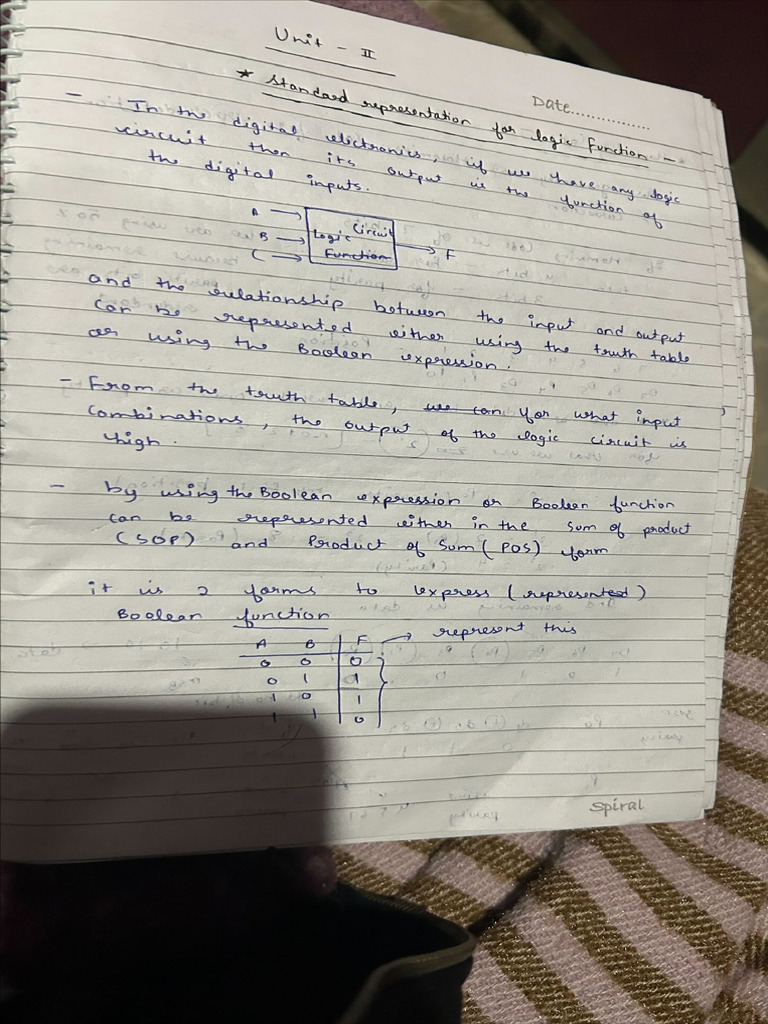 Unit - II
Date...............
* Standard representation for logic Function -
- In the digital electronics, if we have any logic
circuit then its output is the function of
the digital inputs.
A
B
C
Logic Circuit
Function
F
and the relationship between the input and output
can be represented either using the truth table
or using the Boolean expression.
- From the truth table, we can for what input
combinations, the output of the logic circuit is
high.
- by using the Boolean expression or Boolean function
can be represented either in the sum of product
(SOP) and Product of Sum (POS) form
it is 2 forms to express (represented)
Boolean function
A B F → represent this
0 0 0
0 1 1
1 0 1
1 1 0
Spiral